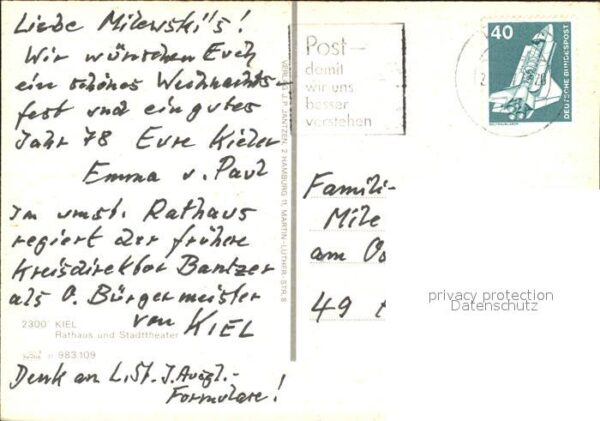 Liebe Milewski's!
Wir wünschen Euch
ein schönes Weihnachts-
fest und ein gutes
Jahr 78 Eure Kieler
Emma u. Paul
Im umst. Rathaus
regiert der frühere
Kreisdirektor Bantzer
als O. Bürgermeister
von KIEL
2300 KIEL
Rathaus und Stadttheater
983.109
Denk an L.St.J.Ausgl.-
Formulare!
VERLAG J.P. JANTZEN, 2 HAMBURG 11, MARTIN-LUTHER-STR. 8
Post-
damit
wir uns
besser
verstehen
40
DEUTSCHE BUNDESPOST
Famili-
Mile
am
49
privacy protection
Datenschutz